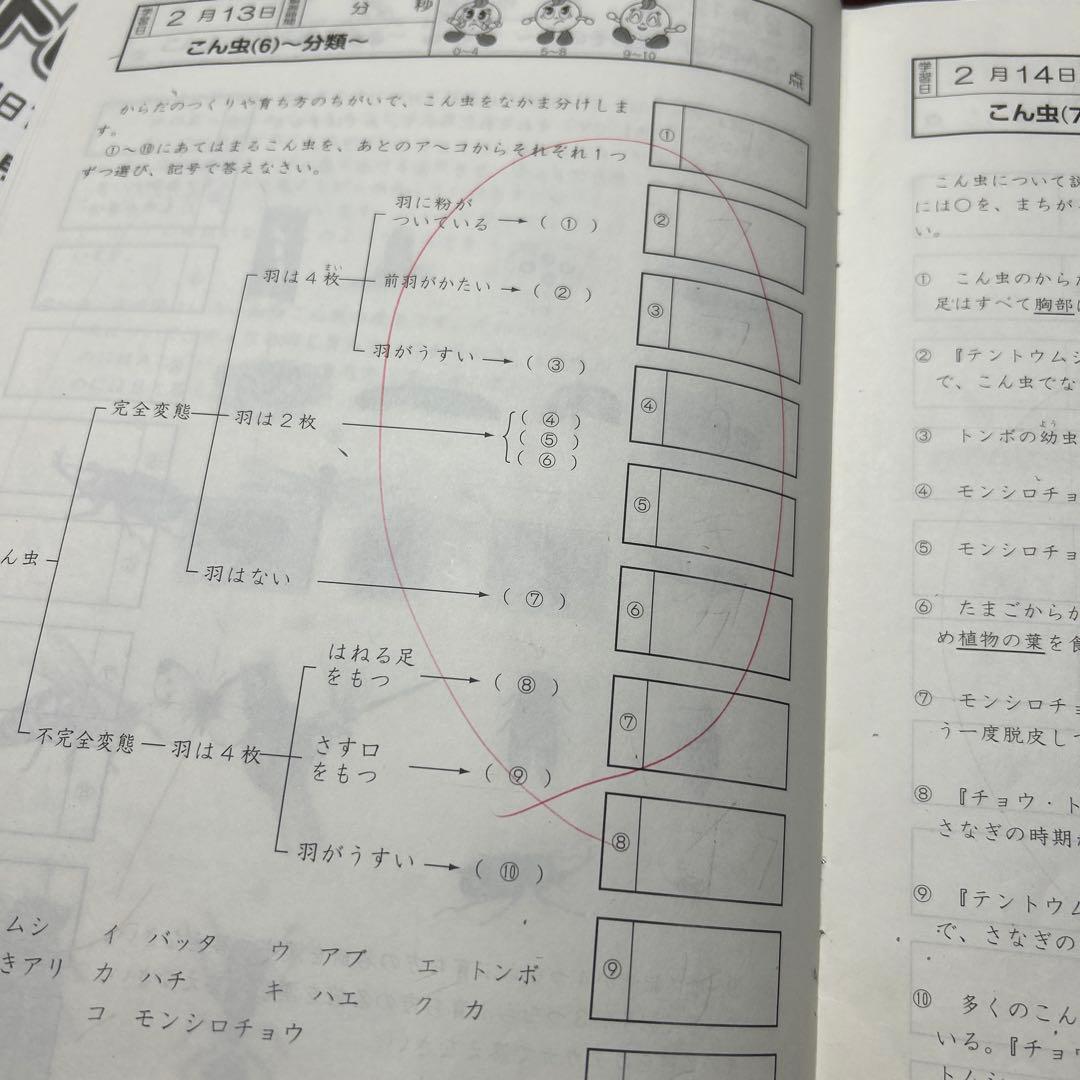 学習日 2月13日 分 秒
こん虫(6)～分類～
0～4 5～8 9～10
点
からだのつくりや育ち方のちがいで、こん虫をなかま分けしま
す。
①～⑩にあてはまるこん虫を、あとのア～コからそれぞれ1つ
ずつ選び、記号で答えなさい。
羽に粉が
ついている → ( ① )
羽は4枚
まい
前羽がかたい → ( ② )
羽がうすい → ( ③ )
完全変態
羽は2枚
( ④ )
( ⑤ )
( ⑥ )
ん虫
羽はない → ( ⑦ )
はねる足
をもつ → ( ⑧ )
不完全変態 羽は4枚
さす口
をもつ → ( ⑨ )
羽がうすい → ( ⑩ )
ムシ イ バッタ ウ アブ エ トンボ
きアリ カ ハチ キ ハエ ク カ
コ モンシロチョウ
①
②
③
④
⑤
⑥
⑦
⑧
⑨
学習日 2月14日
こん虫(7
こん虫について
には○を、まちが
い。
① こん虫のからだ
足はすべて胸部
② 『テントウムシ
で、こん虫でな
よう
③ トンボの幼虫
④ モンシロチョ
⑤ モンシロチョ
⑥ たまごからか
め植物の葉を食
⑦ モンシロチョ
う一度脱皮し
⑧ 『チョウ・ト
さなぎの時期
⑨ 『テントウム
で、さなぎの
⑩ 多くのこん
いる。『チョウ
トムシ